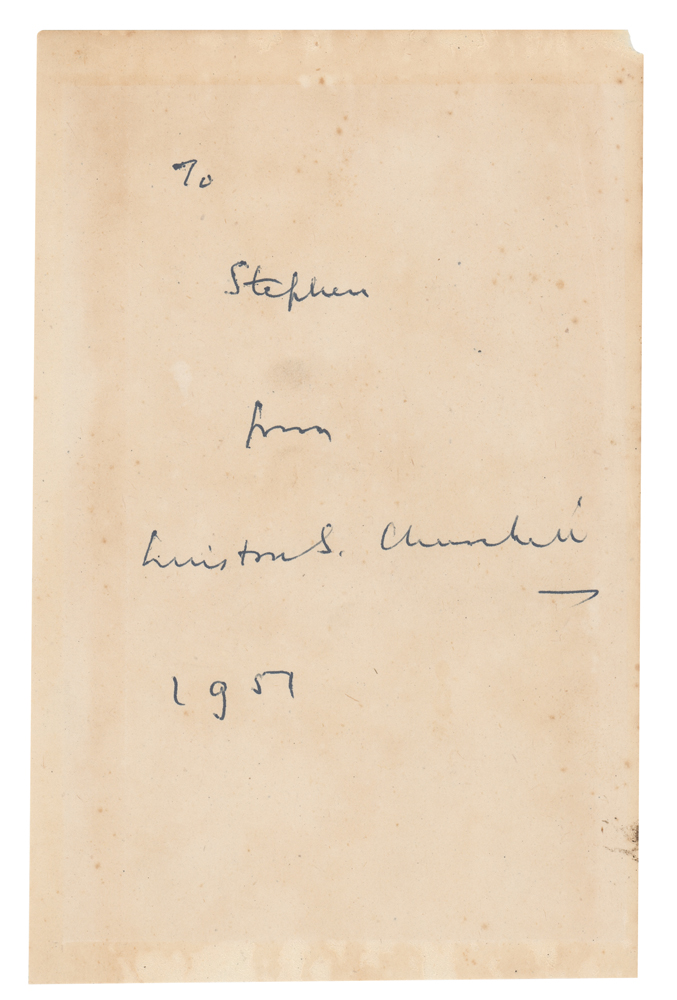 To
Stephen
from
Winston S. Churchill
1951